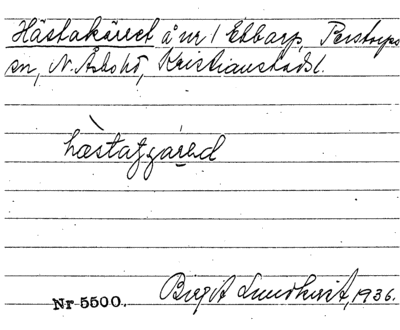 Hästakärret å nr 1 Ebbarp, Perstorps
sn, N. Åsbo hd, Kristianstads l.
hæstagarəd
Nr 5500.
Birgit Lundkvist, 1936.